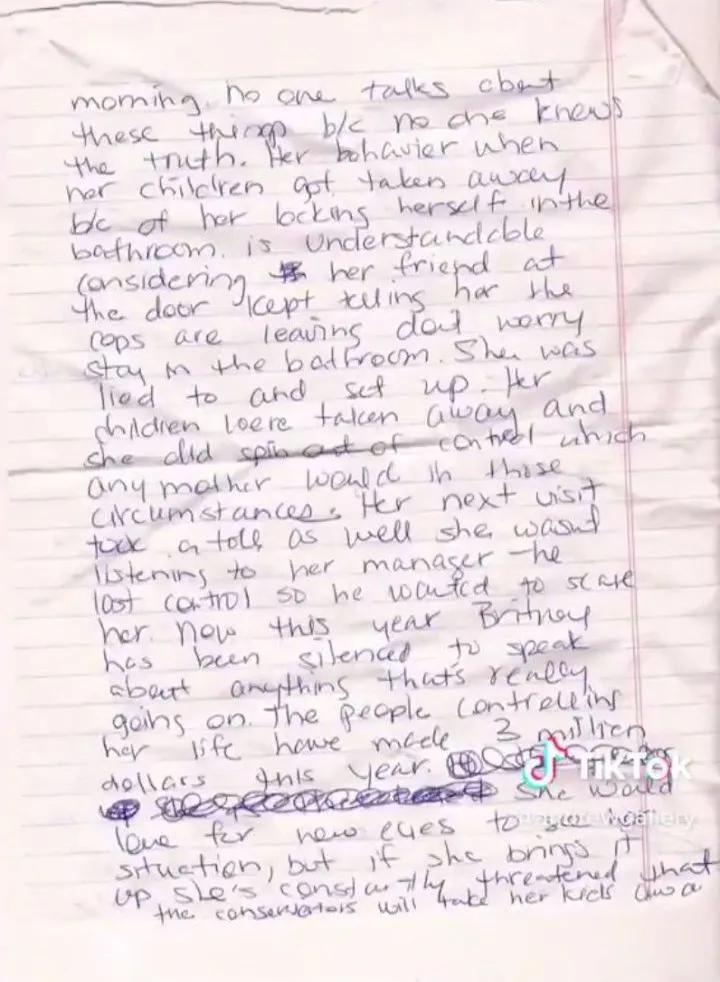 morning. no one talks about
these things b/c no one knows
the truth. Her behavier when
her children got taken away
b/c of her locking herself in the
bathroom. is understandable
considering her friend at
the door kept telling her the
cops are leaving don't worry
stay in the bathroom. She was
lied to and set up. Her
children were taken away and
she did spin out of control which
any mother would in those
circumstances. Her next visit
took a toll as well she wasn't
listening to her manager - he
lost control so he wanted to scare
her. Now this year Britney
has been silenced to speak
about anything that's really
going on. The people controlling
her life have made 3 million
dollars this year.
She would
love for new eyes to see
situation, but if she brings it
up she's constantly threatened that
the conservators will take her kids awa
TikTok